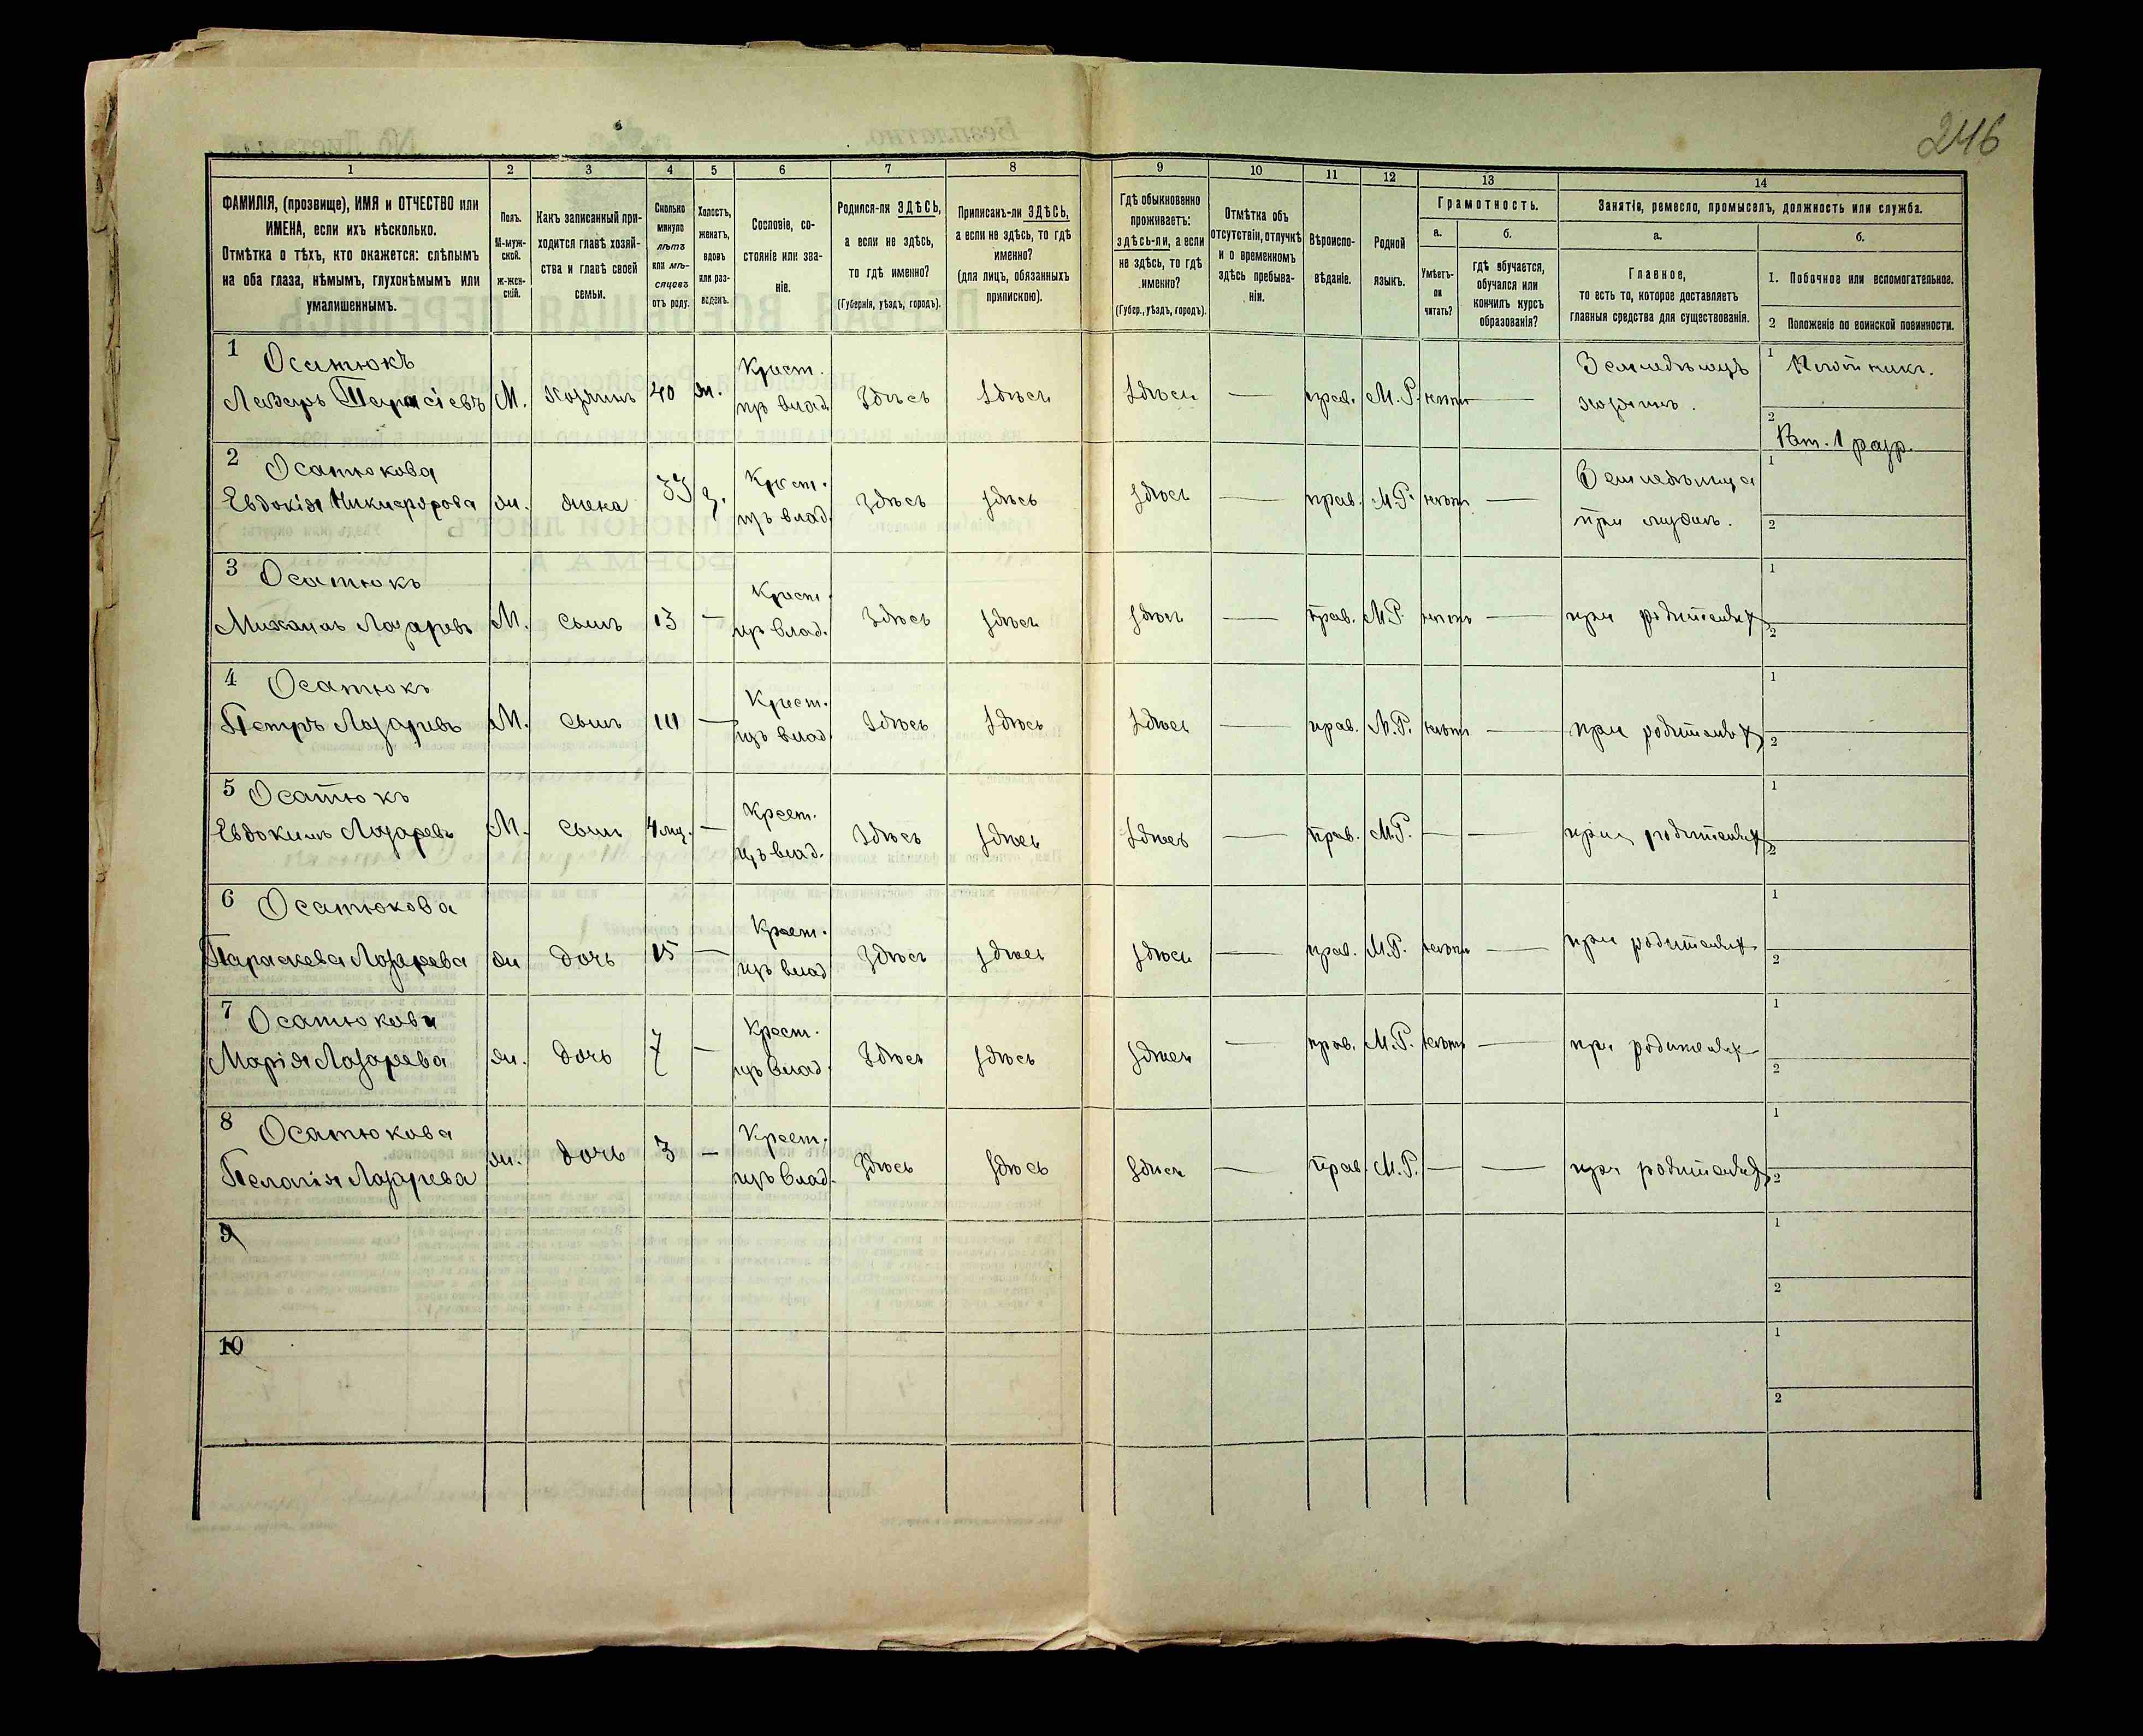 246
1
2
3
4
5
6
7
8
9
10
11
12
13
14
ФАМИЛІЯ, (прозвище), ИМЯ и ОТЧЕСТВО или
ИМЕНА, если ихъ нѣсколько.
Отмѣтка о тѣхъ, кто окажется: слѣпымъ
на оба глаза, нѣмымъ, глухонѣмымъ или
умалишеннымъ.
Полъ.
М-муж-
ской.
ж-жен-
скій.
Какъ записанный при-
ходится главѣ хозяй-
ства и главѣ своей
семьи.
Сколько
минуло
лѣтъ
или мѣ-
сяцевъ
отъ роду.
Холостъ,
женатъ,
вдовъ
или раз-
веденъ.
Сословіе, со-
стояніе или зва-
ніе.
Родился-ли ЗДѢСЬ,
а если не здѣсь,
то гдѣ именно?
(Губернія, уѣздъ, городъ).
Приписанъ-ли ЗДѢСЬ,
а если не здѣсь, то гдѣ
именно?
(для лицъ, обязанныхъ
припискою).
Гдѣ обыкновенно
проживаетъ:
здѣсь-ли, а если
не здѣсь, то гдѣ
именно?
(Губер., уѣздъ, городъ).
Отмѣтка объ
отсутствіи, отлучкѣ
и о временномъ
здѣсь пребыва-
ніи.
Вѣроиспо-
вѣданіе.
Родной
языкъ.
Грамотность.
а.
Умѣетъ-
ли
читать?
б.
гдѣ обучается,
обучался или
кончилъ курсъ
образованія?
Занятія, ремесло, промыселъ, должность или служба.
а.
Главное,
то есть то, которое доставляетъ
главныя средства для существованія.
б.
1. Побочное или вспомогательное.
2 Положеніе по воинской повинности.
1 Осатюкъ
Лазарь М. Хозяинъ 40 ж. Крест. изъ влад. Здѣсь здѣсь здѣсь — прав. М.Р. нѣтъ — Земледѣлецъ хозяинъ.
1 Плотникъ.
2 Рат. 1 разр.
2 Осатюкова
Евдокія Никифорова ж. жена 33 з. Крест. изъ влад. Здѣсь здѣсь здѣсь — прав. М.Р. нѣтъ — Земледѣлица при мужѣ.
1
2
3 Осатюкъ
Михаилъ Лазаревъ М. сынъ 13 — Крест. изъ влад. Здѣсь здѣсь здѣсь — прав. М.Р. нѣтъ — при родителях
1
2
4 Осатюкъ
Петръ Лазаревъ М. сынъ — Крест. изъ влад Здѣсь здѣсь здѣсь — прав. М.Р. нѣтъ — при родителях
1
2
5 Осатюкъ
Евдокимъ Лазаревъ М. сынъ 4 мц. — Крест. изъ влад. Здѣсь здѣсь здѣсь — прав. М.Р. — — при родителях
1
2
6 Осатюкова
Параскева Лазарева ж дочь 15 — Крест. изъ влад Здѣсь здѣсь здѣсь — прав. М.Р. нѣтъ — при родителях
1
2
7 Осатюкова
Марія Лазарева ж. дочь 7 — Крест. изъ влад. Здѣсь здѣсь здѣсь — прав. М.Р. нѣтъ — при родителях
1
2
8 Осатюкова
Пелагія Лазарева ж. дочь 3 — Крест. изъ влад. Здѣсь здѣсь здѣсь — прав. М.Р. — — при родителях
1
2
9
1
2
10
1
2